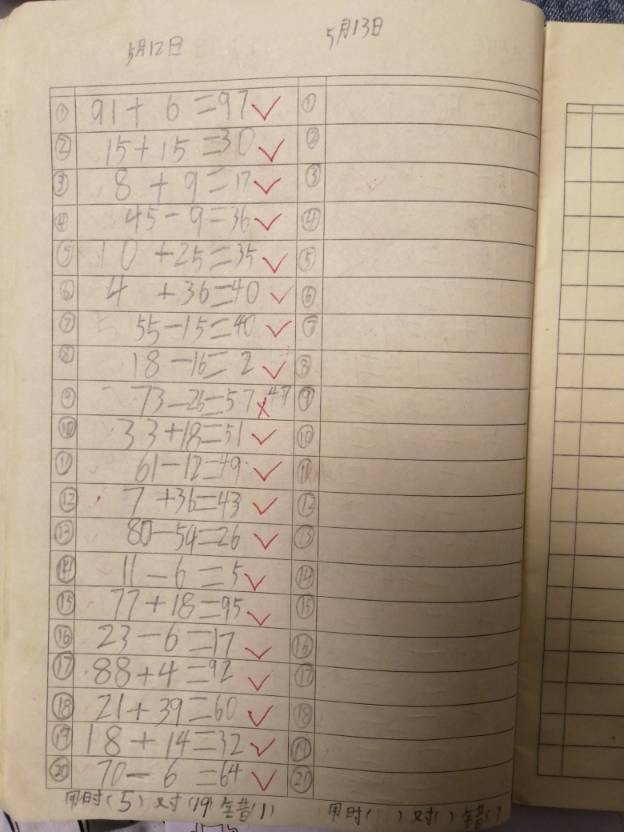 5月12日
5月13日
① 91+6=97 ✓ ①
② 15+15=30 ✓ ②
③ 8+9=17 ✓ ③
④ 45-9=36 ✓ ④
⑤ 10+25=35 ✓ ⑤
⑥ 4+36=40 ✓ ⑥
⑦ 55-15=40 ✓ ⑦
⑧ 18-16=2 ✓ ⑧
⑨ 73-26=57 × 47 ⑨
⑩ 33+18=51 ✓ ⑩
⑪ 61-12=49 ✓ ⑪
⑫ 7+36=43 ✓ ⑫
⑬ 80-54=26 ✓ ⑬
⑭ 11-6=5 ✓ ⑭
⑮ 77+18=95 ✓ ⑮
⑯ 23-6=17 ✓ ⑯
⑰ 88+4=92 ✓ ⑰
⑱ 21+39=60 ✓ ⑱
⑲ 18+14=32 ✓ ⑲
⑳ 70-6=64 ✓ ⑳
用时(5)对(19)错(1) 用时( )对( )错( )